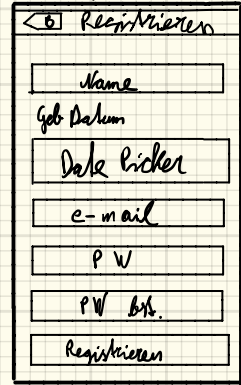 Registrieren
Name
Geb Datum
Date Picker
e-mail
PW
PW best.
Registrieren